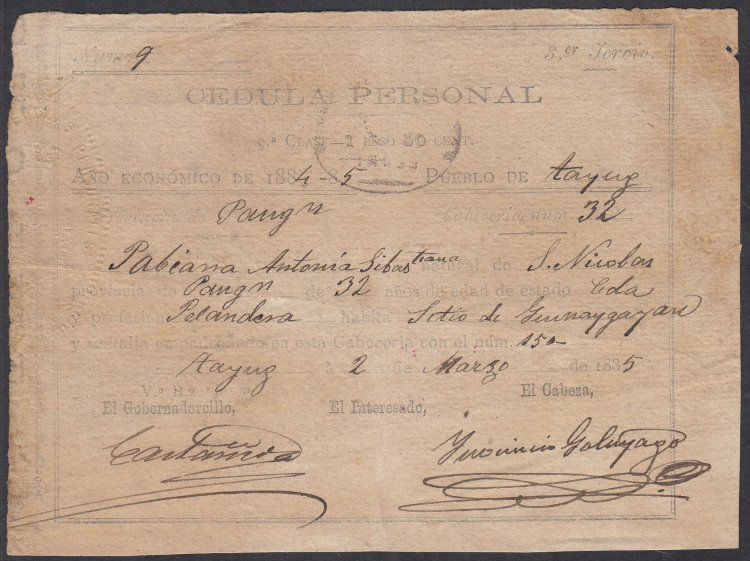 Num. 9 3.er Tercio.
CEDULA PERSONAL
9.ª CLASE—1 PESO 50 CENT.
AÑO ECONÓMICO DE 1884-85 PUEBLO DE Tayug
Provincia de Pangn Cabecería núm. 32
Fabiana Antonia Sibastiana natural de S. Nicolas
provincia de Pangn de 32 años de edad de estado Cda
y profesion Telandera habita Sitio de
y se halla empadronado en esta Cabecería con el núm. 150
Tayug á 2 de Marzo de 1885
V.º B.º
El Gobernadorcillo, El Interesado, El Cabeza,
Castañeda